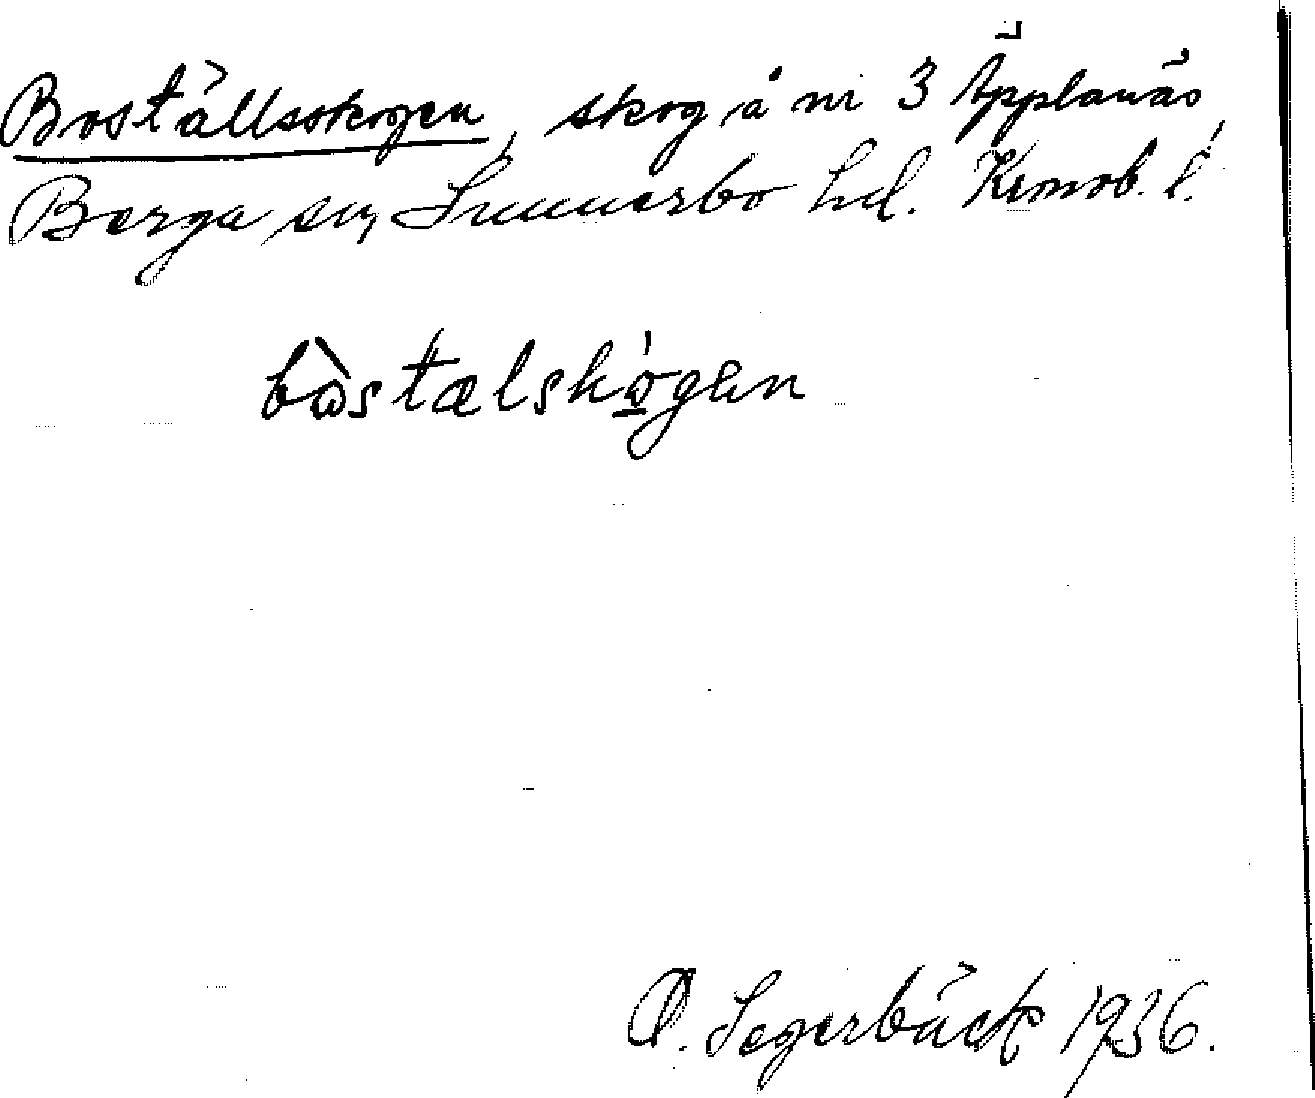 Boställsskogen, skog å nr 3 Äpplanäs
Berga sn, Sunnerbo hd. Kronob. l.
bòstælskógen
O. Segerbäck 1936.